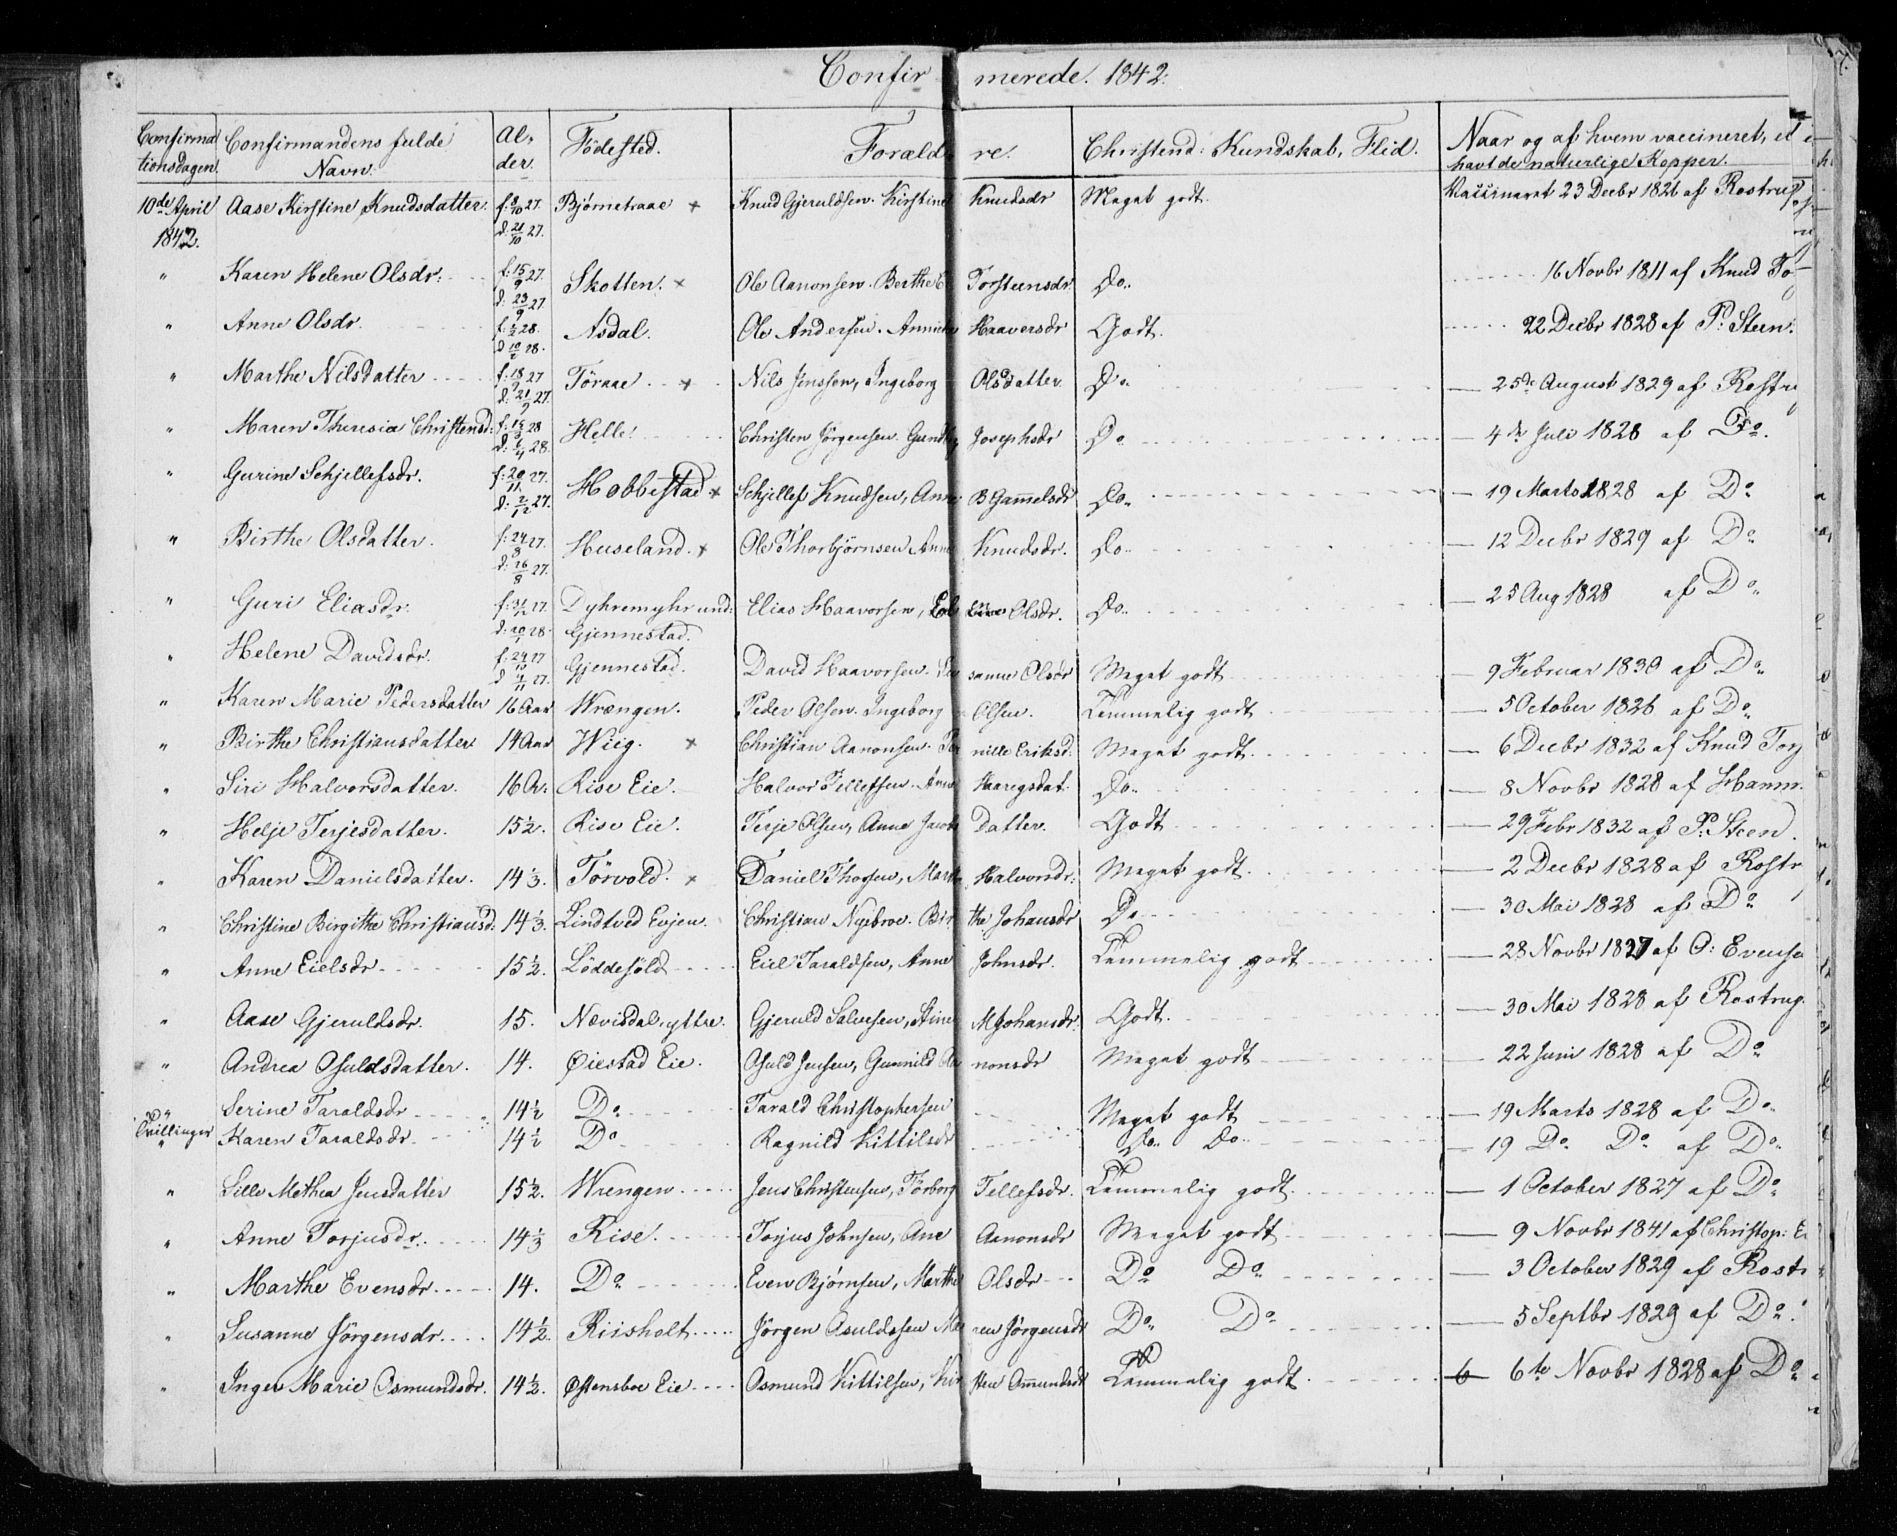 Confirmerede. 1842.
Confirmationsdagen. Confirmandens fulde Navn. Alder. Födested. Forældre. Christend: Kundskab, Flid. Naar og af hvem vaccineret, el havt de naturlige Kopper.
10de April 1842. Aase Kirstine Knudsdatter. f: 8/10 27. d. 21/10 27. Bjørnetraae + Knud Gjeruldsen. Kirstine Knudsdr Meget godt. Vaccineret 23 Decbr 1826 af Rostrup
" Karen Helene Olsdr: f: 15/9 27. d: 23/9 27 Skotten. + Ole Aanonsen. Berthe Torsteensdr. Do. 16 Novbr 1811 af Knud To
" Anne Olsdr. 28. 28. Asdal. Ole Andersen. Haaversdr Godt. 22 Decbr 1828 af P. Steen.
" Marthe Nilsdatter f: 18/9 27 d: 21/9 27. Töraae + Nils Jenssen, Ingeborg Olsdatter. Do. — 25de August 1829 af Rostru
" Maren Theresia Christensd: 28 d: 6/4 28. Helle. Christen Jörgensen. Josephsdr Do — 4de Juli 1828 af Do.
" Gurine Schjellefsdr. f: 20/11 27. d: 2/12 27. Hobbestad + Schjellef Knudsen, Anne B Gamelsdr Do. — 19 Marts 1828 af Do
" Birthe Olsdatter. f: 24/8 27. d: 26/8 27. Huseland. + Ole Thorbjörnsen Anne Knudsdr. Do. — 12 Decbr 1829 af Do
" Guri Eliasdr. f: 31/12 27. d: 20/1 28. Dyhremyhr und: Gjennestad. Elias Haavorsen, Olsdr. Do. — 25 Aug 1828 af Do.
" Helene Davidsdr. f: 24/10 27 d 4/11 27. Gjennestad. David Haavorsen. Susanne Olsdr Meget godt — 9 Februar 1830 af Do.
" Karen Marie Pedersdatter 16 Aar Wrængen. Peder Olsen. Ingeborg Olsen. Temmelig godt — 5 October 1826 af Do.
" Birthe Christiansdatter 14 Aar Wiig. + Christian Aanonsen. Pernille Eriksd. Meget godt. — 6 Decbr 1832 af Knud Torj
" Siri Halvorsdatter. 16 Ar. Rise Eie. Halvor Tellefsen. Anne Do. — 8 Novbr 1828 af Hamm.
" Helje Terjesdatter. 15½. Rise Eie. Terje Olsen, Anne Jacobs Datter. Godt — 29 Febr 1832 af P. Steen.
" Karen Danielsdatter. 14⅓. Törvold. + Daniel Thorsen, Marthe Halvorsdr. Meget godt. — 2 Decbr 1828 af Rostr
" Christine Birgithe Christiansd: 14⅓. Lindtved Eyjen. Christian Nyebroe. Birthe Johansdr Do — 30 Mai 1828 af Do
" Anne Eielsdr 15½. Löddesöld Eiel Taraldsen, Anne Johnsdr. Temmelig godt — 28 Novbr 1827 af O: Evense
" Aase Gjeruldsdr. 15. Nævisdal, yttre. Gjeruld Salvesen, Stine M Johansdr. Godt. — 30 Mai 1828 af Rostrup.
" Andrea Osuldsdatter. 14. Øiestad Eie. Osuld Jensen, Gunnild Aanonsdr Meget godt — 22 Juni 1828 af Do
" Tvillinger Serine Taraldsdr 14½ Do Tarald Christophersen Meget godt — 19 Marts 1828 af Do.
" Karen Taraldsdr. 14½ Do Ragnild Kittilsdr Do. Do. — 19 Do Do. af Do.
" Sille Mathea Jensdatter 15½. Wrengen Jens Christensen, Törborg Tellefsdr. Temmelig godt. — 1 October 1827 af Do
" Anne Torjusdr. 14⅓ Rise. Torjus Johnsen, Ane Aanonsdr Meget godt — 9 Novbr 1841 af Christop: E
" Marthe Evensdr. 14. Do Even Bjørnsen, Marthe Olsdr Do Do — 3 October 1829 af Rostr
" Susanne Jörgensdr. 14½. Riisholt Jörgen Osuldsen Maren Jörgensdr Do. Do — 5 Septbr 1829 af Do.
" Inger Marie Osmundsdr. 14½. Østensboe Eie Osmund Kittilsen, Kirsten Osmundsdr Temmelig godt. 6 6te Novbr 1828 af Do